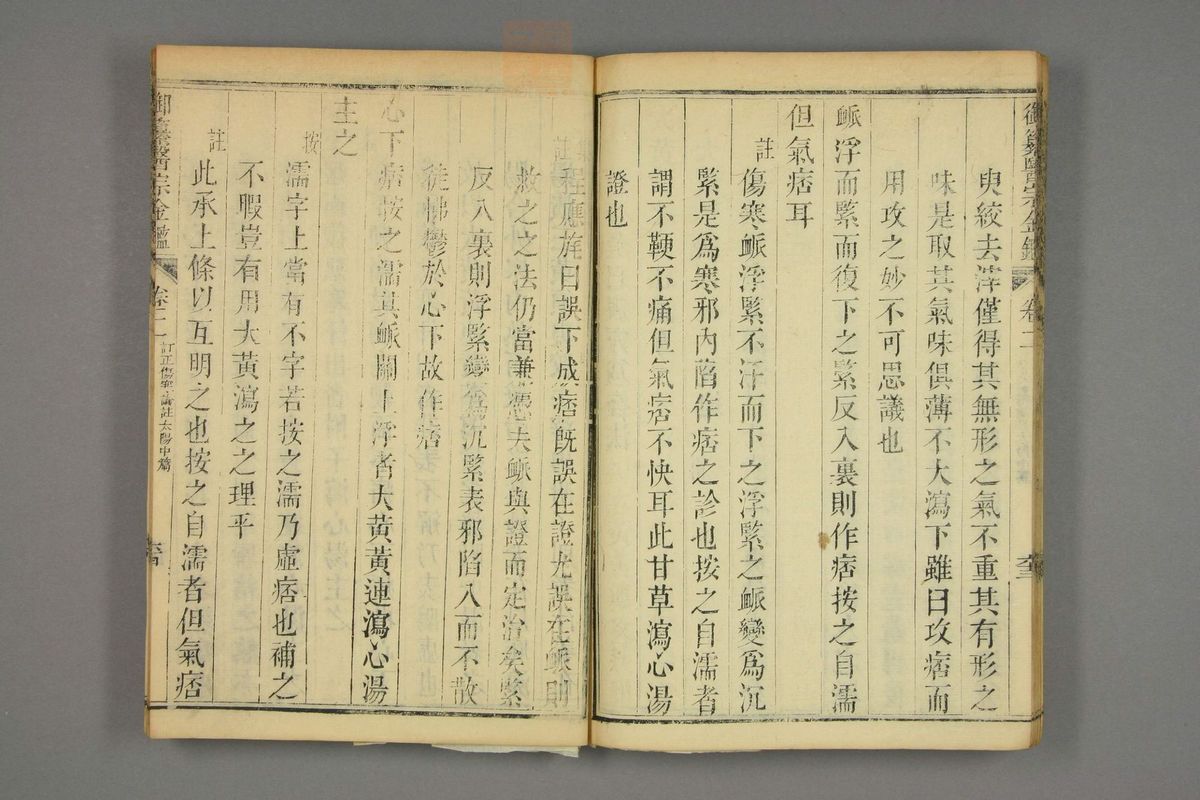 御纂醫宗金鑑 卷二 至
臾絞去滓僅得其無形之氣不重其有形之
味是取其氣味俱薄不大瀉下雖曰攻痞而
用攻之妙不可思議也
脈浮而緊而復下之緊反入裏則作痞按之自濡
但氣痞耳
註 傷寒脈浮緊不汗而下之浮緊之脈變爲沉
緊是爲寒邪內陷作痞之診也按之自濡者
謂不鞕不痛但氣痞不快耳此甘草瀉心湯
證也
集註 程應旄曰誤下成痞既誤在證尤誤在脈則
救之之法仍當兼凭夫脈與證而定治矣緊
反入裏則浮緊變沉緊表邪陷入而不散
徒怫鬱於心下故作痞
心下痞按之濡其脈關上浮者大黃黃連瀉心湯
主之
按 濡字上當有不字若按之濡乃虛痞也補之
不暇豈有用大黃瀉之之理乎
註 此承上條以互明之也按之自濡者但氣痞
御纂醫宗金鑑 卷二 訂正傷寒論註太陽中篇